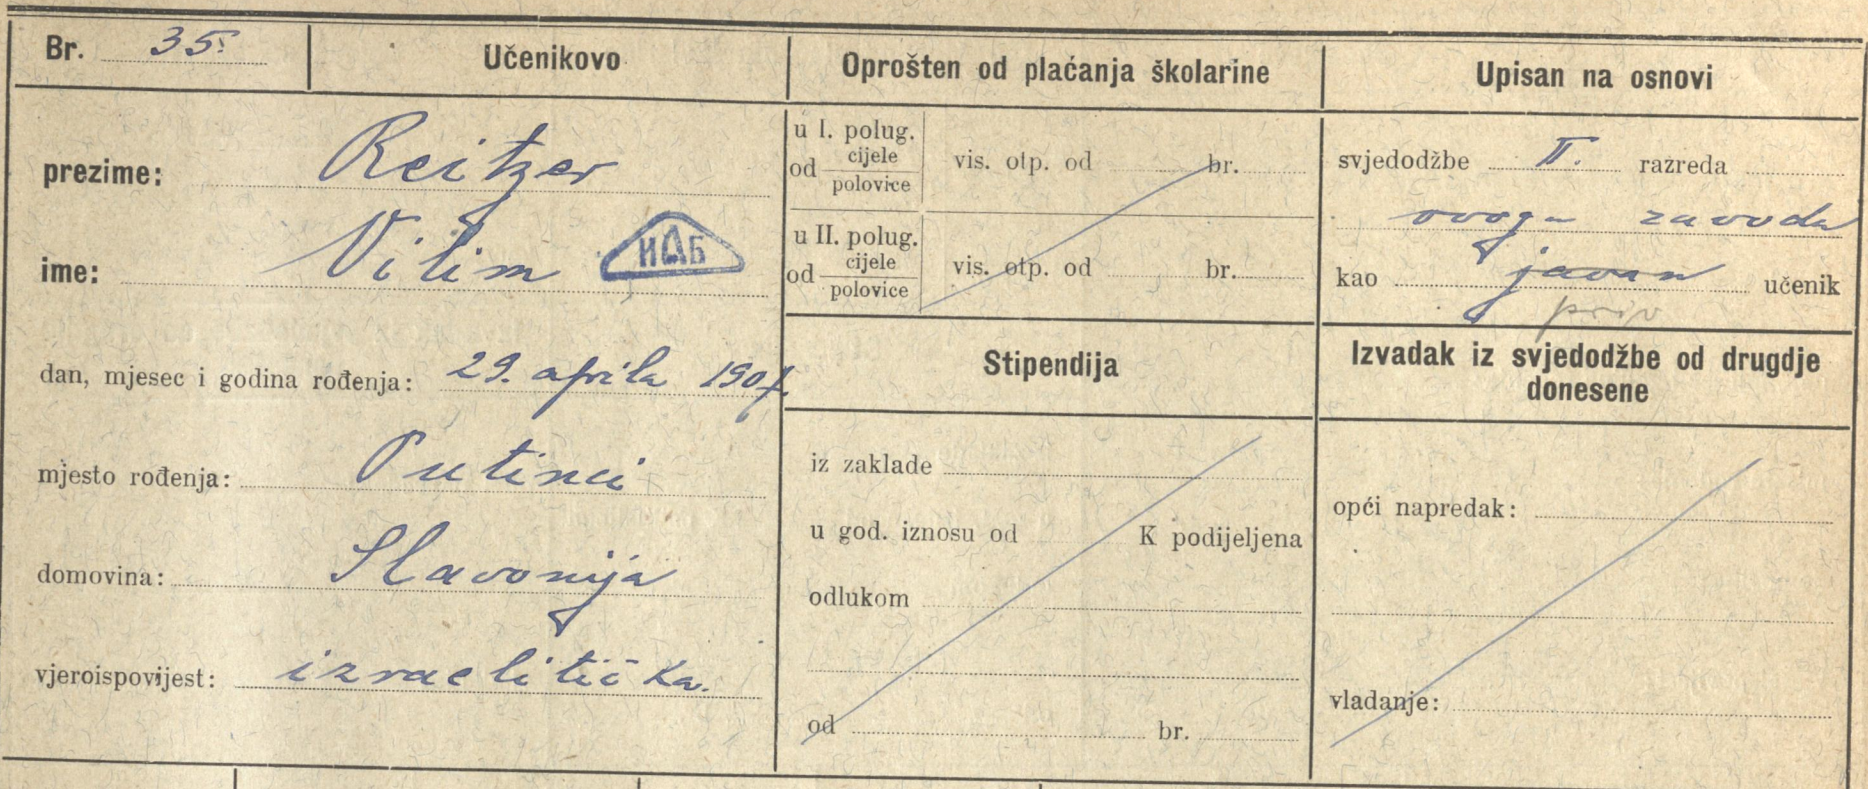 Br. 35.
Učenikovo
prezime: Reitzer
ime: Vilim
ИДБ
dan, mjesec i godina rođenja: 29. aprila 1907.
mjesto rođenja: Putinci
domovina: Slavonija
vjeroispovijest: izraelitička.
Oprošten od plaćanja školarine
u I. polug.
od cijele
polovice
vis. otp. od br.
u II. polug.
od cijele
polovice
vis. otp. od br.
Stipendija
iz zaklade
u god. iznosu od K podijeljena
odlukom
od br.
Upisan na osnovi
svjedodžbe II. razreda
ovoga zavoda
kao javan učenik
priv
Izvadak iz svjedodžbe od drugdje
donesene
opći napredak:
vladanje: